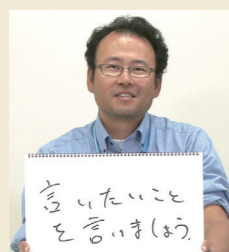 言いたいこと
を言いましょう.